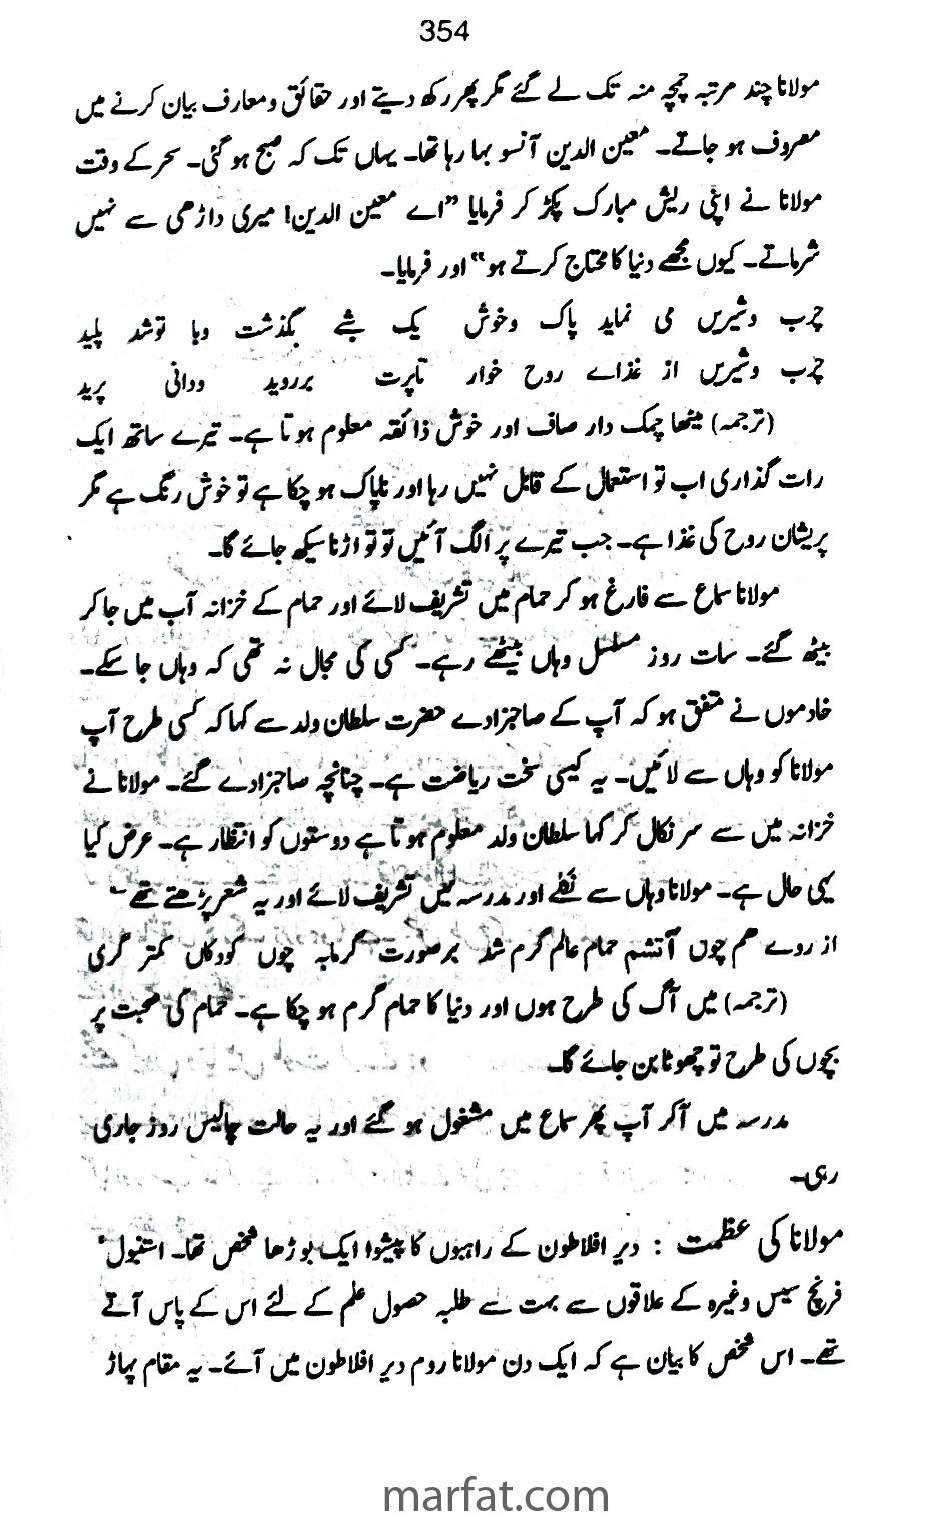 354
مولانا چند مرتبہ چمچہ منہ تک لے گئے مگر پھر رکھ دیتے اور حقائق و معارف بیان کرنے میں
مصروف ہو جاتے۔ معین الدین آنسو بہا رہا تھا۔ یہاں تک کہ صبح ہو گئی۔ سحر کے وقت
مولانا نے اپنی ریش مبارک پکڑ کر فرمایا ”اے معین الدین! میری داڑھی سے نہیں
شرماتے۔ کیوں مجھے دنیا کا محتاج کرتے ہو“ اور فرمایا۔
چرب وشیریں می نماید پاک وخوش یک شبے بگذشت وبا توشد پلید
چرب وشیریں از غذاے روح خوار تاپرت برروید ودانی پرید
(ترجمہ) میٹھا چمک دار صاف اور خوش ذائقہ معلوم ہوتا ہے۔ تیرے ساتھ ایک
رات گذاری اب تو استعمال کے قابل نہیں رہا اور ناپاک ہو چکا ہے تو خوش رنگ ہے مگر
پریشان روح کی غذا ہے۔ جب تیرے پر الگ آئیں تو تو اڑنا سیکھ جائے گا۔
مولانا سماع سے فارغ ہو کر حمام میں تشریف لائے اور حمام کے خزانہ آب میں جا کر
بیٹھ گئے۔ سات روز مسلسل وہاں بیٹھے رہے۔ کسی کی مجال نہ تھی کہ وہاں جا سکے۔
خادموں نے متفق ہو کہ آپ کے صاحبزادے حضرت سلطان ولد سے کہا کہ کسی طرح آپ
مولانا کو وہاں سے لائیں۔ یہ کیسی سخت ریاضت ہے۔ چنانچہ صاحبزادے گئے۔ مولانا نے
خزانہ میں سے سر نکال کر کہا سلطان ولد معلوم ہوتا ہے دوستوں کو انتظار ہے۔ عرض کیا
یہی حال ہے۔ مولانا وہاں سے نکلے اور مدرسہ میں تشریف لائے اور یہ شعر پڑھتے تھے
از روے ہم چوں آتشم حمام عالم گرم شد برصورت گرمابہ چوں کودکاں کمتر گری
(ترجمہ) میں آگ کی طرح ہوں اور دنیا کا حمام گرم ہو چکا ہے۔ حمام کی محبت پر
بچوں کی طرح تو چھوٹا بن جائے گا۔
مدرسہ میں آکر آپ پھر سماع میں مشغول ہو گئے اور یہ حالت چالیس روز جاری
رہی۔
مولانا کی عظمت : دیر افلاطون کے راہبوں کا پیشوا ایک بوڑھا شخص تھا۔ استنبول'
فرنچ سیس وغیرہ کے علاقوں سے بہت سے طلبہ حصول علم کے لئے اس کے پاس آتے
تھے۔ اس شخص کا بیان ہے کہ ایک دن مولانا روم دیر افلاطون میں آئے۔ یہ مقام پہاڑ
marfat.com